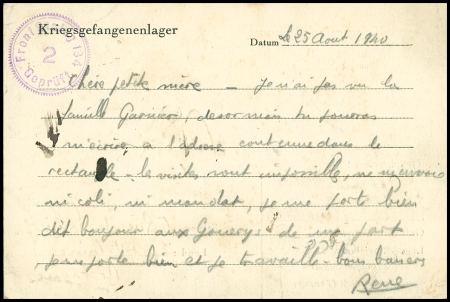 Kriegsgefangenenlager
Datum le 25 Aout 1940
Frontstalag 134
2
Geprüft
Chère petite mère – je n'ai pas vu la
famille Garnier, desormais tu pourras
m'écrire a l'adresse contenue dans le
rectangle – les visites sont impossible, ne m'envoie
ni coli, ni mandat, je me porte bien
dit bonjour aux de ma part
je me porte bien et je travaille – bons baisers
René